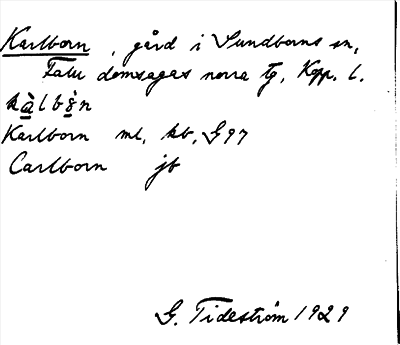 Karlborn, gård i Sundborns sn,
Falu domsagas norra tg, Kopp. l.
kàlbòn
Karlborn ml, kb, G97
Carlborn jb
G. Tideström 1929